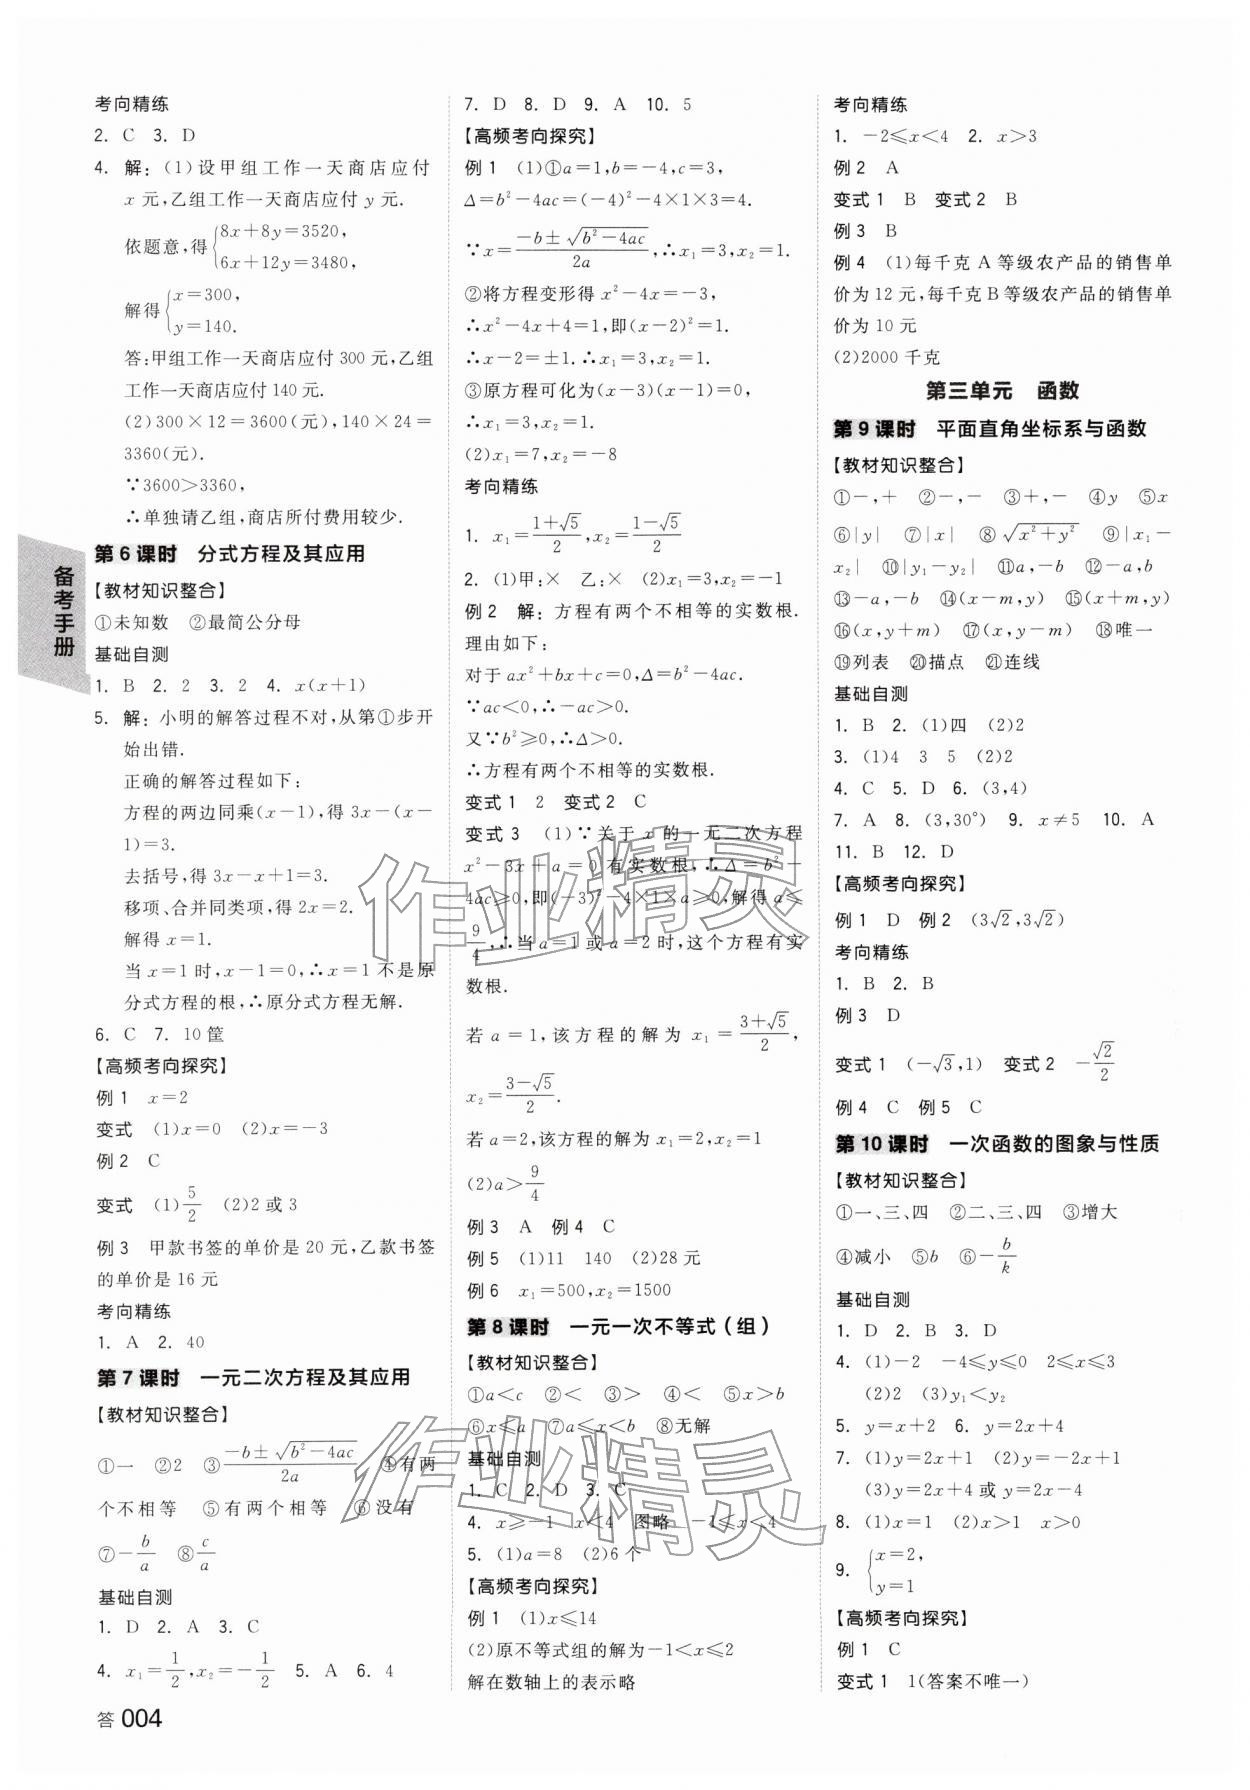 考向精练
2. C 3. D
4. 解：(1)设甲组工作一天商店应付
x 元,乙组工作一天商店应付 y 元.
依题意,得{8x+8y=3520,
6x+12y=3480,
解得{x=300,
y=140.
答:甲组工作一天商店应付 300 元,乙组
工作一天商店应付 140 元.
(2)300×12=3600(元),140×24=
3360(元).
∵3600>3360,
∴单独请乙组,商店所付费用较少.
第 6 课时 分式方程及其应用
【教材知识整合】
①未知数 ②最简公分母
基础自测
1. B 2. 2 3. 2 4. x(x+1)
5. 解：小明的解答过程不对,从第①步开
始出错.
正确的解答过程如下：
方程的两边同乘(x−1),得 3x−(x−
1)=3.
去括号,得 3x−x+1=3.
移项、合并同类项,得 2x=2.
解得 x=1.
当 x=1 时,x−1=0,∴x=1 不是原
分式方程的根,∴原分式方程无解.
6. C 7. 10 筐
【高频考向探究】
例 1 x=2
变式 (1)x=0 (2)x=−3
例 2 C
变式 (1)5/2 (2)2 或 3
例 3 甲款书签的单价是 20 元,乙款书签
的单价是 16 元
考向精练
1. A 2. 40
第 7 课时 一元二次方程及其应用
【教材知识整合】
①一 ②2 ③(−b±√(b²−4ac))/2a ④有两
个不相等 ⑤有两个相等 ⑥没有
⑦−b/a ⑧c/a
基础自测
1. D 2. A 3. C
4. x₁=1/2,x₂=−1/2 5. A 6. 4
7. D 8. D 9. A 10. 5
【高频考向探究】
例 1 (1)①a=1,b=−4,c=3,
Δ=b²−4ac=(−4)²−4×1×3=4.
∵x=(−b±√(b²−4ac))/2a,∴x₁=3,x₂=1.
②将方程变形得 x²−4x=−3,
∴x²−4x+4=1,即(x−2)²=1.
∴x−2=±1.∴x₁=3,x₂=1.
③原方程可化为(x−3)(x−1)=0,
∴x₁=3,x₂=1.
(2)x₁=7,x₂=−8
考向精练
1. x₁=(1+√5)/2,x₂=(1−√5)/2
2. (1)甲:× 乙:× (2)x₁=3,x₂=−1
例 2 解：方程有两个不相等的实数根.
理由如下：
对于 ax²+bx+c=0,Δ=b²−4ac.
∵ac<0,∴−ac>0.
又∵b²≥0,∴Δ>0.
∴方程有两个不相等的实数根.
变式 1 2 变式 2 C
变式 3 (1)∵关于 x 的一元二次方程
x²−3x+a=0 有实数根,∴Δ=b²−
4ac≥0,即(−3)²−4×1×a≥0,解得 a≤
9/4,∴当 a=1 或 a=2 时,这个方程有实
数根.
若 a=1,该方程的解为 x₁=(3+√5)/2,
x₂=(3−√5)/2.
若 a=2,该方程的解为 x₁=2,x₂=1
(2)a>9/4
例 3 A 例 4 C
例 5 (1)11 140 (2)28 元
例 6 x₁=500,x₂=1500
第 8 课时 一元一次不等式(组)
【教材知识整合】
①a<c ②< ③> ④< ⑤x>b
⑥x≤a ⑦a≤x<b ⑧无解
基础自测
1. C 2. D 3. C
4. x≥−1 x<4 图略 −1≤x<4
5. (1)a=8 (2)6 个
【高频考向探究】
例 1 (1)x≤14
(2)原不等式组的解为−1<x≤2
解在数轴上的表示略
考向精练
1. −2≤x<4 2. x>3
例 2 A
变式 1 B 变式 2 B
例 3 B
例 4 (1)每千克 A 等级农产品的销售单
价为 12 元,每千克 B 等级农产品的销售单
价为 10 元
(2)2000 千克
第三单元 函数
第 9 课时 平面直角坐标系与函数
【教材知识整合】
①−,+ ②−,− ③+,− ④y ⑤x
⑥|y| ⑦|x| ⑧√(x²+y²) ⑨|x₁−
x₂| ⑩|y₁−y₂| ⑪a,−b ⑫−a,b
⑬−a,−b ⑭(x−m,y) ⑮(x+m,y)
⑯(x,y+m) ⑰(x,y−m) ⑱唯一
⑲列表 ⑳描点 ㉑连线
基础自测
1. B 2. (1)四 (2)2
3. (1)4 3 5 (2)2
4. C 5. D 6. (3,4)
7. A 8. (3,30°) 9. x≠5 10. A
11. B 12. D
【高频考向探究】
例 1 D 例 2 (3√2,3√2)
考向精练
1. B 2. B
例 3 D
变式 1 (−√3,1) 变式 2 −√2/2
例 4 C 例 5 C
第 10 课时 一次函数的图象与性质
【教材知识整合】
①一、三、四 ②二、三、四 ③增大
④减小 ⑤b ⑥−b/k
基础自测
1. D 2. B 3. D
4. (1)−2 −4≤y≤0 2≤x≤3
(2)2 (3)y₁<y₂
5. y=x+2 6. y=2x+1
7. (1)y=2x+1 (2)y=2x+1
(3)y=2x+4 或 y=2x−4
8. (1)x=1 (2)x>1 x>0
9. {x=2,
y=1
【高频考向探究】
例 1 C
变式 1 1(答案不唯一)
备考手册
答 004
作业精灵
作业精灵